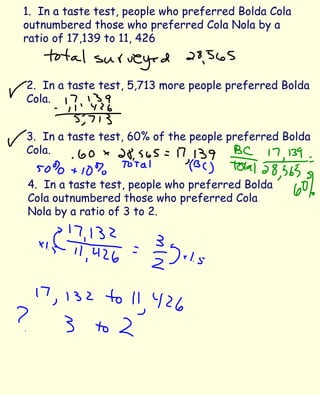 1. In a taste test, people who preferred Bolda Cola
outnumbered those who preferred Cola Nola by a
ratio of 17,139 to 11, 426
total surveyed 28,565
2. In a taste test, 5,713 more people preferred Bolda
Cola. 17,139
- 11,426
5,713
3. In a taste test, 60% of the people preferred Bolda
Cola. .60 x 28,565 = 17,139 BC 17,139 =
50% + 10% Total (BC) total 28,565 60%
4. In a taste test, people who preferred Bolda
Cola outnumbered those who preferred Cola
Nola by a ratio of 3 to 2.
17,132 3
x1.5 = x1.5
11,426 2
17,132 to 11,426
? 3 to 2